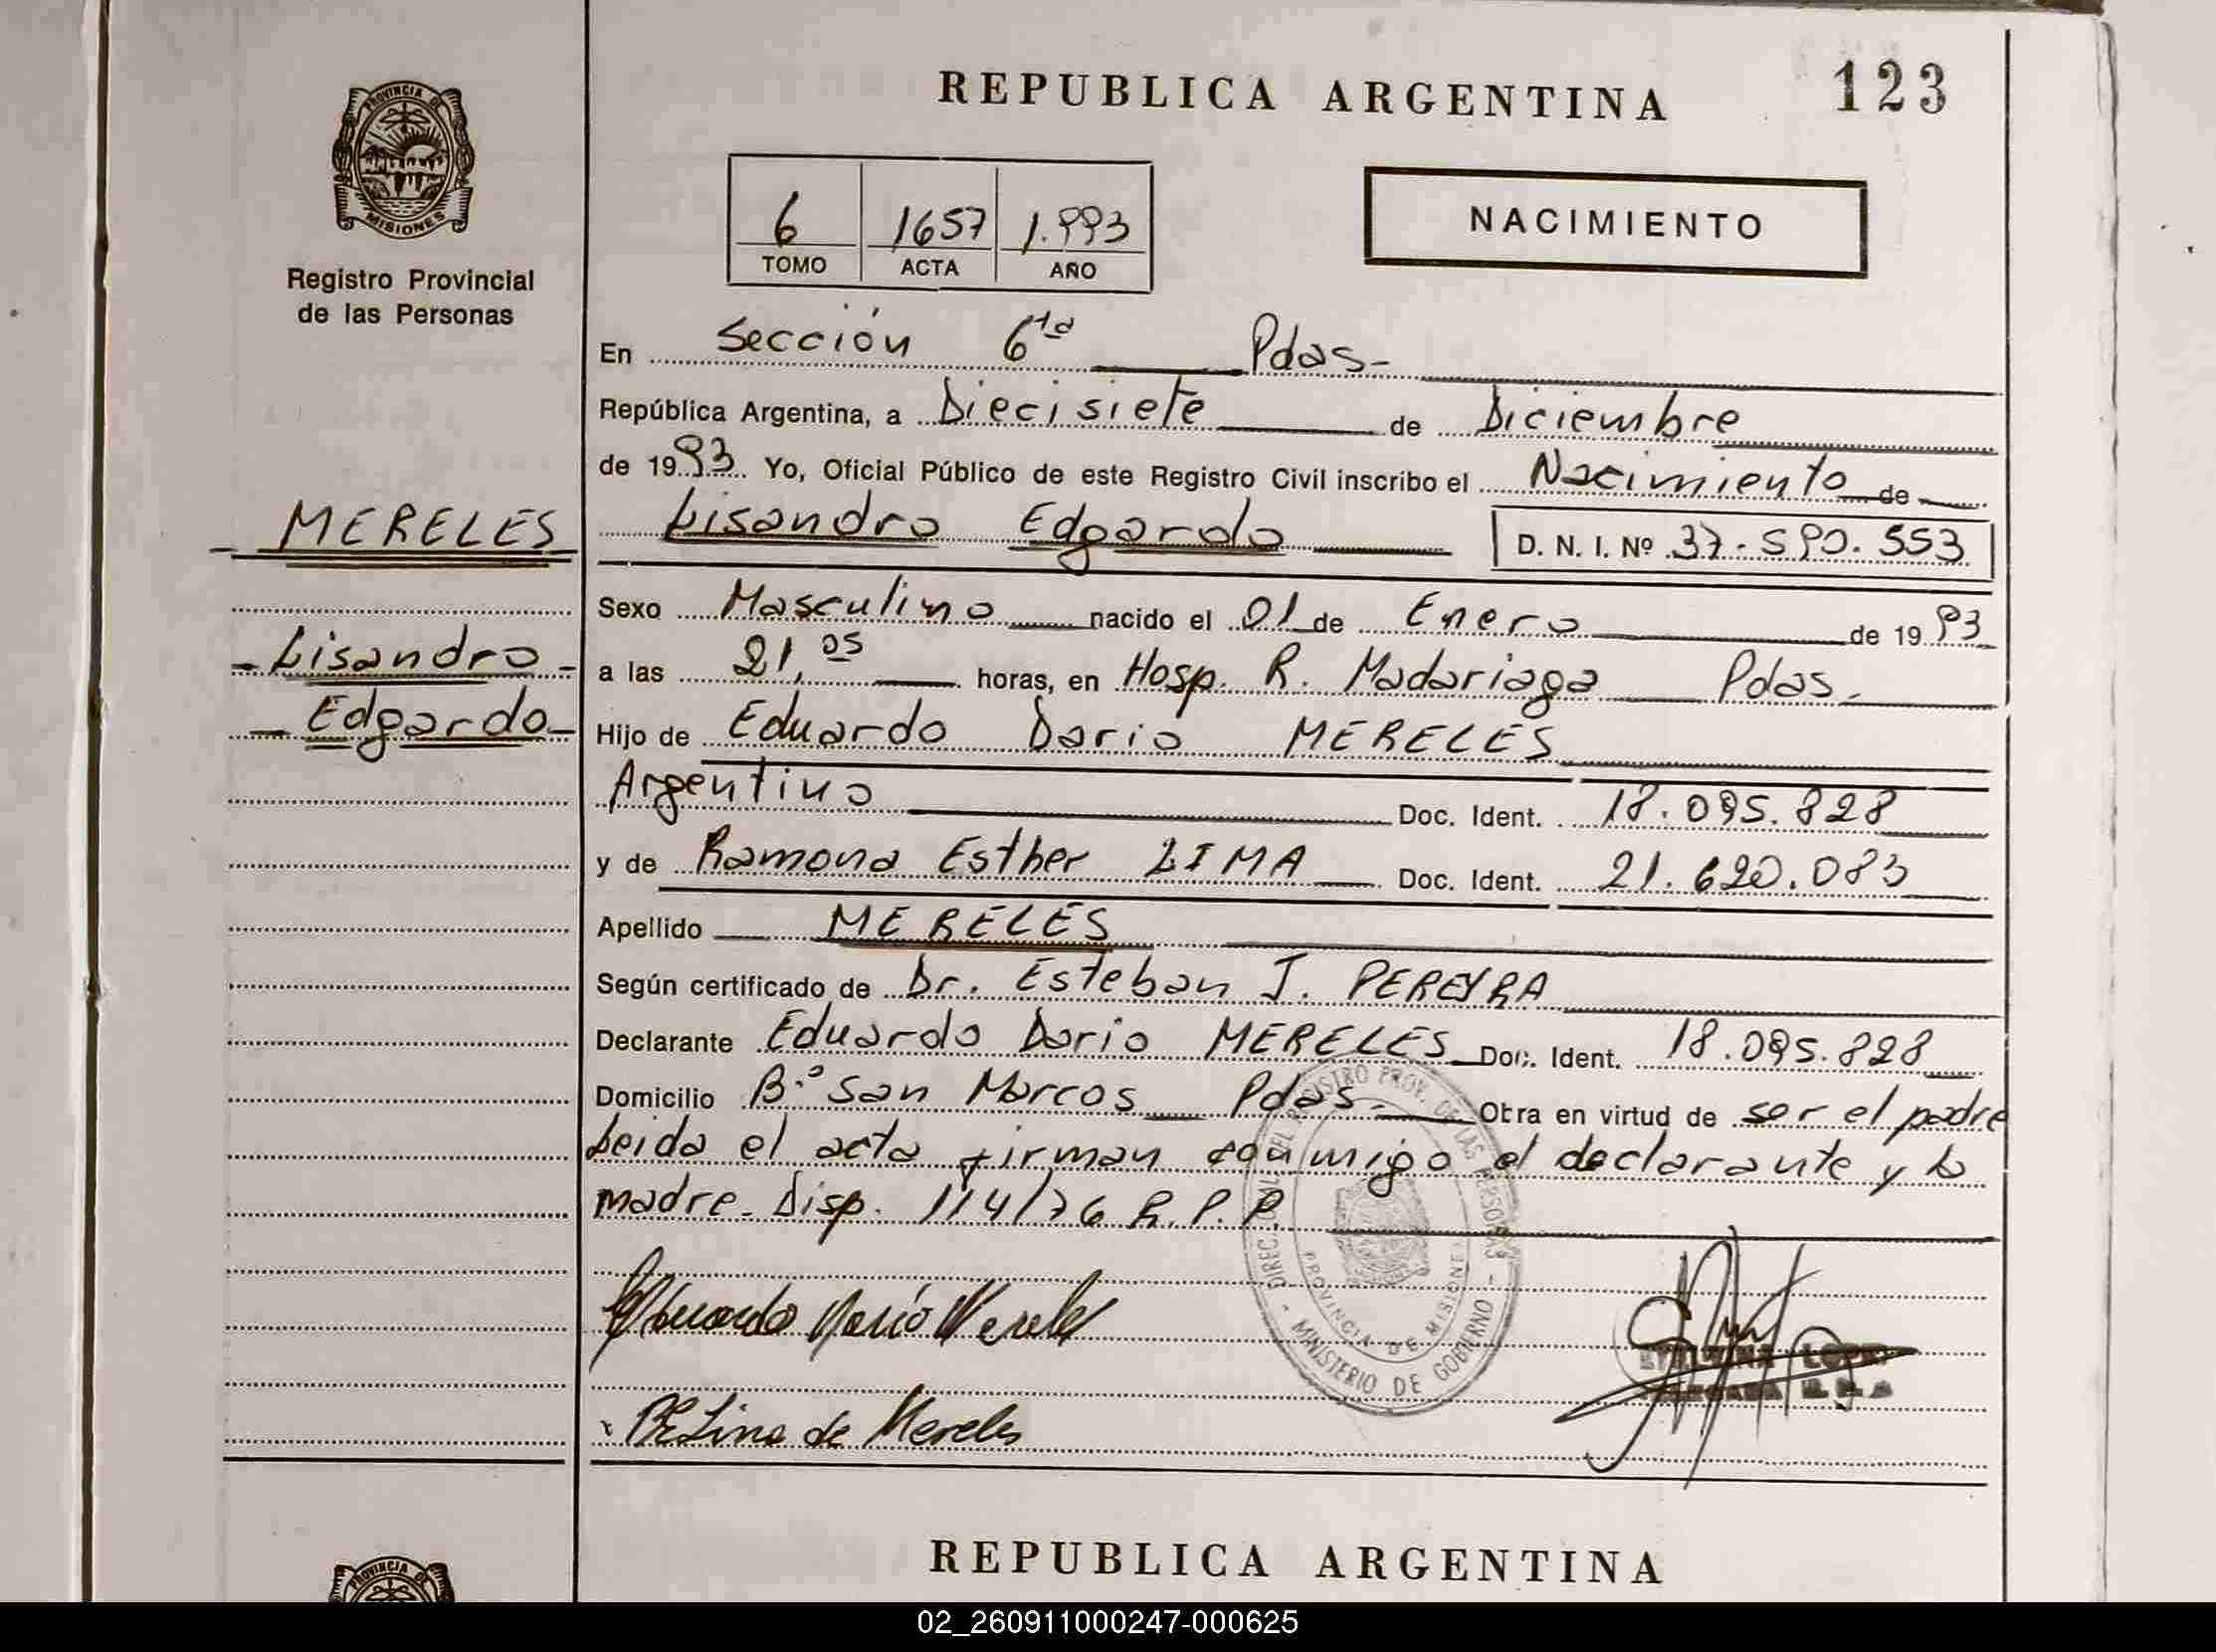 REPUBLICA ARGENTINA
123
PROVINCIA DE
MISIONES
Registro Provincial
de las Personas
6 1657 1.993
TOMO ACTA AÑO
NACIMIENTO
En Sección 6ta Pdas-
República Argentina, a Diecisiete de Diciembre
de 1993 Yo, Oficial Público de este Registro Civil inscribo el Nacimiento de
MERELES
Lisandro Edgardo D. N. I. Nº 37.590.553
Sexo Masculino nacido el 01 de Enero de 1993
Lisandro
a las 21,05 horas, en Hosp. R. Madariaga Pdas-
Edgardo
Hijo de Eduardo Dario MERELES
Argentino Doc. Ident. 18.095.828
y de Ramona Esther LIMA Doc. Ident. 21.620.083
Apellido MERELES
Según certificado de Dr. Esteban J. PEREYRA
Declarante Eduardo Dario MERELES Doc. Ident. 18.095.828
Domicilio B.º San Marcos Pdas- Obra en virtud de ser el padre
Leida el acta firman conmigo el declarante y la
madre. Disp. 114/76 R.P.P.
DIREC. GRAL DEL REGISTRO PROV. DE LAS PERSONAS
PROVINCIA DE MISIONES
- MINISTERIO DE GOBIERNO -
Eduardo Darío Mereles
RELima de Mereles
REPUBLICA ARGENTINA
PROVINCIA DE
02_260911000247-000625